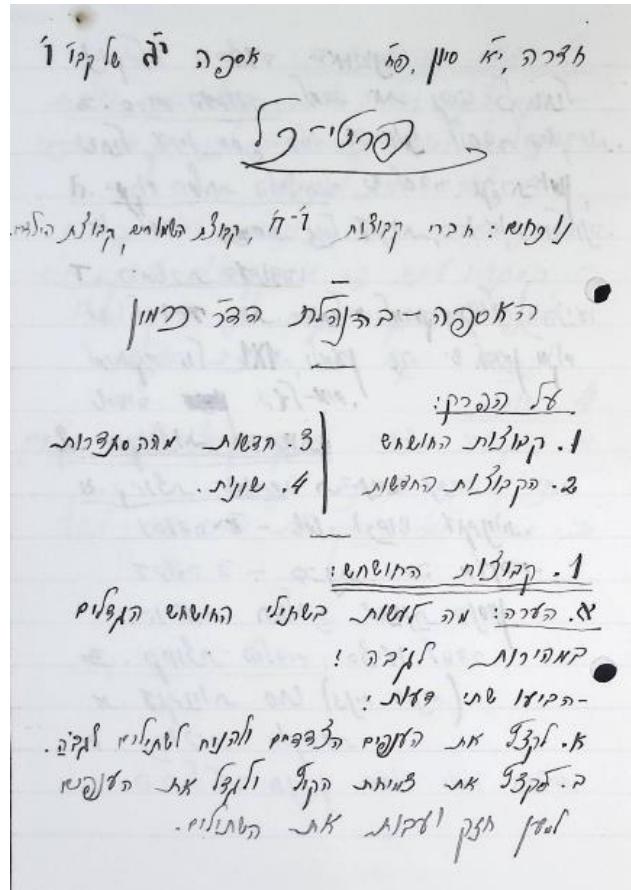 חדרה, י"א סיון, פ"ח אספה י"ג של קבו' ו'
פרטי-כל
נוכחים: חברי קבוצות ו'-ח', קבוצת השמונים, קבוצת הילדים.
האספה - בהנהלת הדר' כרמון
על הפרק:
1. קבוצות החושחש
2. הקבוצות החדשות
3. חדשות מההסתדרות
4. שונית.
1. קבוצות החושחש:
א. הערה: מה לעשות בשתילי החושחש הגדלים
במהירות לג'בה!
- הביעו שתי דעות:
א. לקצץ את הענפים הצדדים ולהנוח לשתילים לגבֹהַ.
ב. לקצץ את צמיחת הקוץ ולגדל את הענפים
למען חזק ועבות את השתילים.